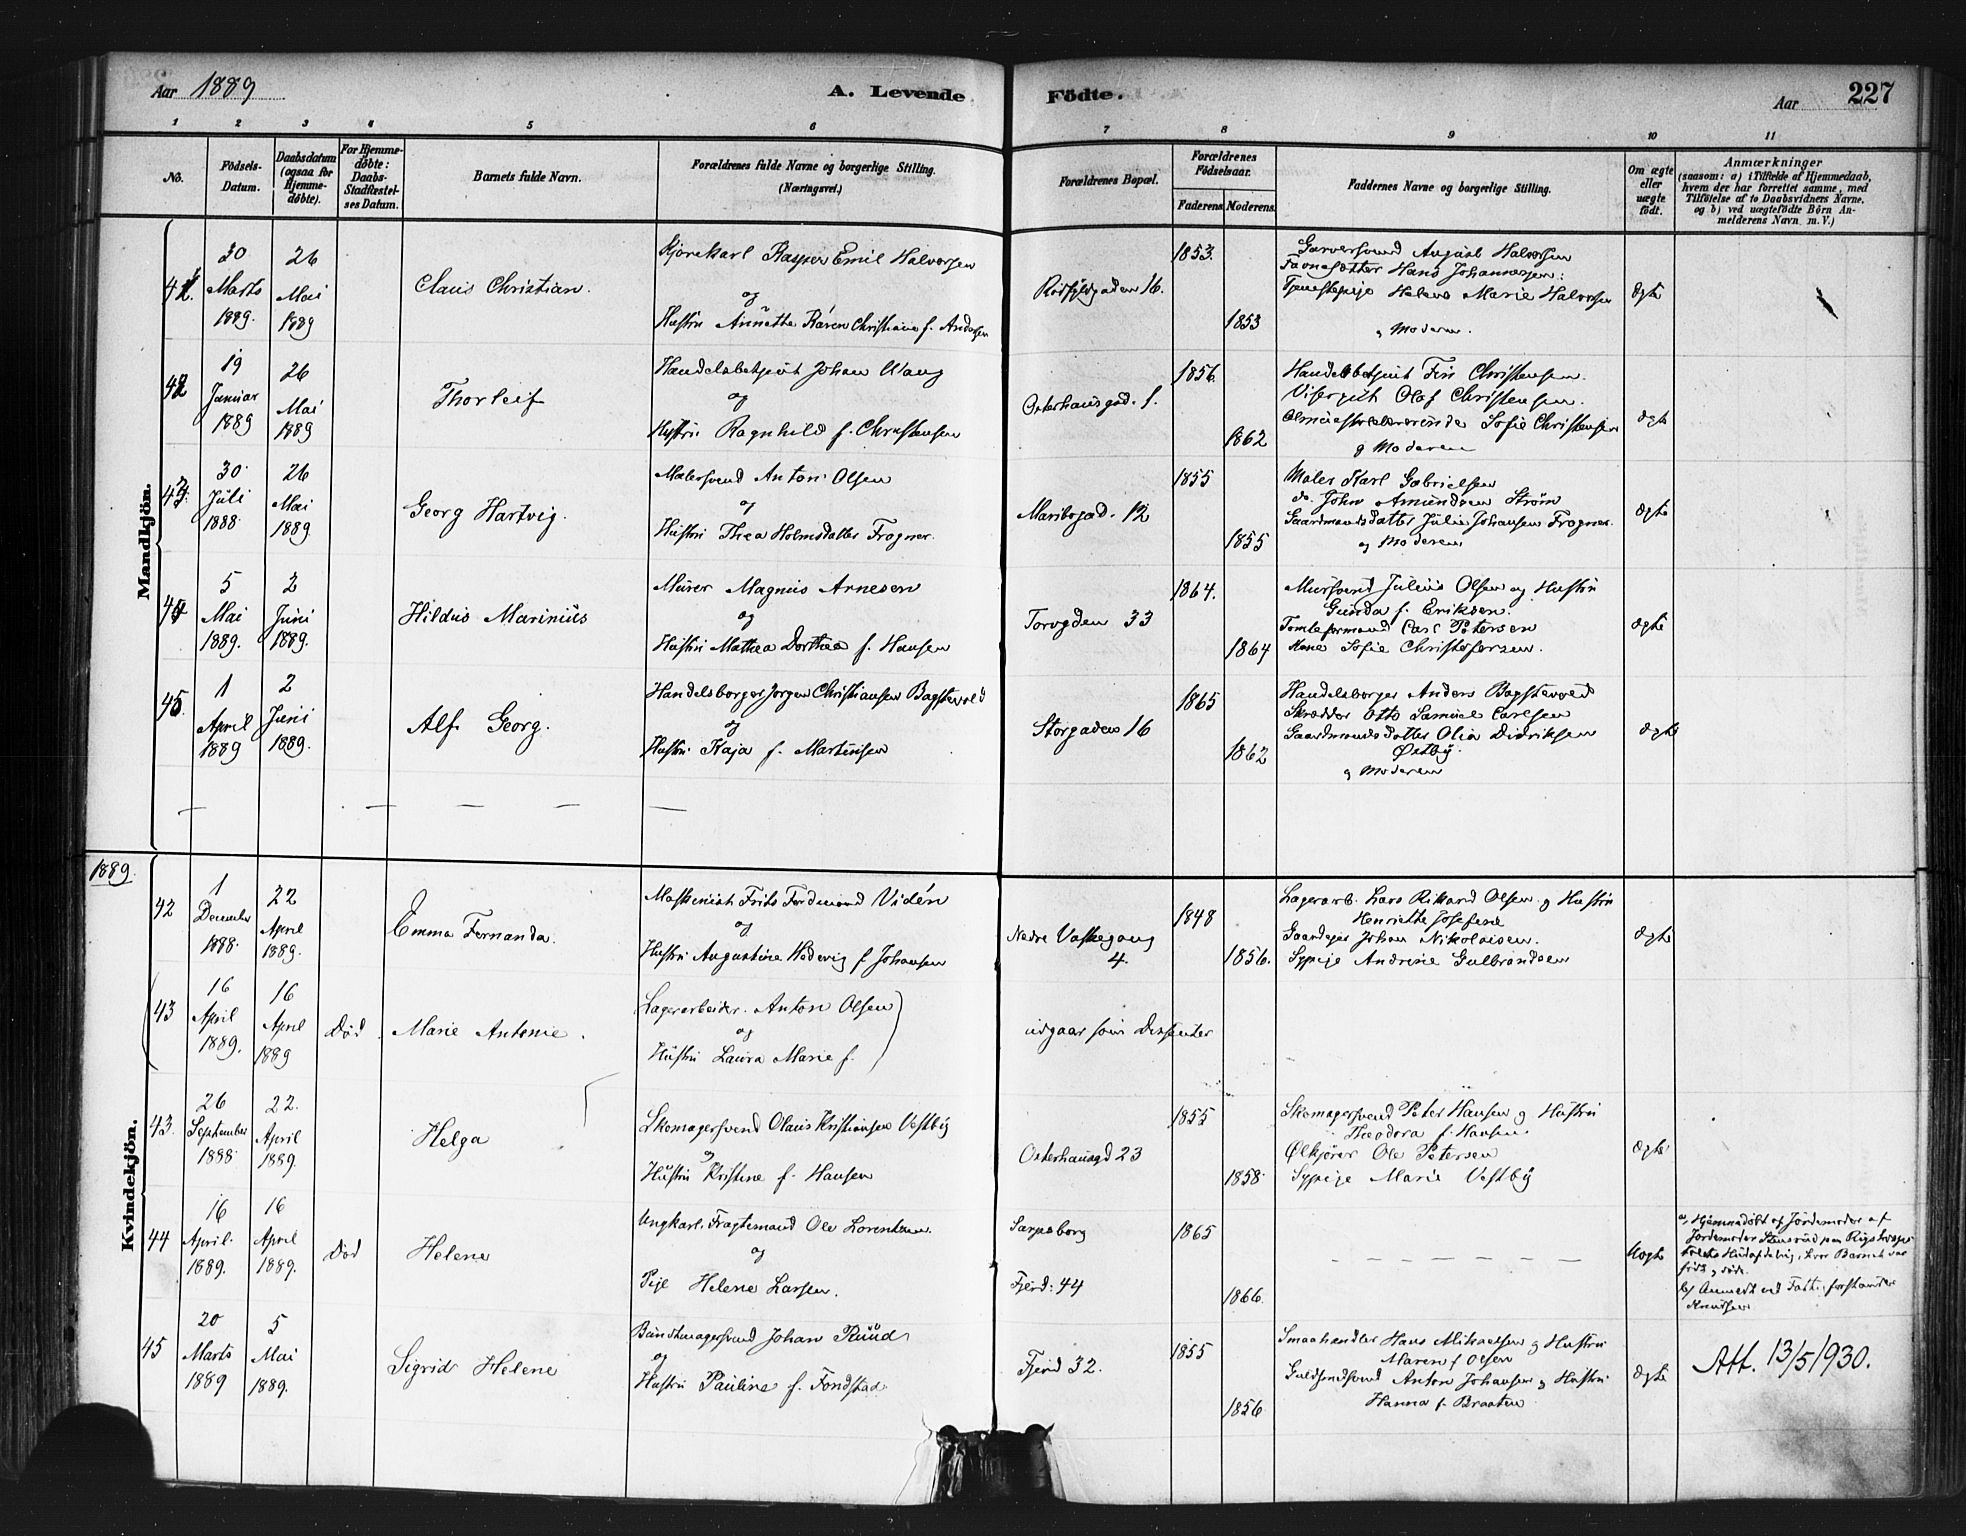 Aar 1889
A. Levende
Födte.
Aar
227
1 2 3 4 5 6 7 8 9 10 11
No.
Födsels-Datum.
Daabsdatum (ogsaa for Hjemmedöbte).
For Hjemmedöbte: Daabs-Stadfæstelses Datum.
Barnets fulde Navn.
Forældrenes fulde Navne og borgerlige Stilling. (Næringsvei.)
Forældrenes Bopæl.
Forældrenes Födselsaar.
Faderens. Moderens.
Faddernes Navne og borgerlige Stilling.
Om ægte eller uægte födt.
Anmærkninger
(saasom: a) i Tilfælde af Hjemmedaab,
hvem der har forrettet samme, med
Tilföielse af to Daabsvidners Navne,
og b) ved uægtefödte Börn Anmelderens Navn m. V.)
Mandkjön.
30 Marts 1889.
26 Mai 1889
Claus Christian.
Kjørekarl Kasper Emil Halvorsen
og
Hustru Annette Karen Christiane f. Andersen
16.
1853.
1853
Garversvend August Halvorsen
Hans Johannessen.
Tjenestepige Helene Marie Halvorsen
og Moderen.
Ægte
42
19 Januar 1889
26 Mai 1889
Thorleif
Handelsbetjent Johan Wang
og
Hustru Ragnhild f. Christensen
Osterhausgad.
1856.
1862
Handelsbetjent Christensen.
Visergut Olaf Christensen.
Sofie Christensen
og Moderen
Ægte
43.
30 Juli 1888
26 Mai 1889.
Georg Hartvig.
Malersvend Anton Olsen
og
Hustru Thea Holmsdatter Frogner.
Maribogad. 12
1855
1855
Maler Karl Gabrielsen
do. John Amundsen Strøm
Gaardmandsdatter Julie Johansen Frogner.
og Moderen
Ægte
44
5 Mai 1889.
2 Juni 1889.
Hildus Marinius
Murer Magnus Arnesen
og
Hustru Mathea Dorthea f. Hansen
Torvgden 33
1864.
1864
Mursvend Julius Olsen og Hustru
Gunda f. Eriksen.
Tomteformand Carl Petersen
Sofie Christofersen.
Ægte
45.
1 April 1889
2 Juni 1889.
Alf Georg.
Handelsborger Jorgen Christiansen Bagstevold
og
Hustru Kaja f. Martinsen
Storgaden 16
1865
1862
Handelsborger Anders Bagstevold
Skrædder Otto Samuel Carlsen
Gaardmandsdatter Olia Didriksen
Østby.
og Moderen
Ægte
1889.
Kvindekjön.
42
1 December 1888.
22 April 1889.
Emma Fernanda.
Maskenist Frits Ferdinand Vidén
og
Hustru Augustine Hedevig f. Johansen
Nedre Vaskegang 4.
1848
1856.
Lagerarb. Lars Rikard Olsen og Hustru
Henriette Josefine
Gaardejer Johan Nikolaisen.
Sypige Andrine Gulbrandsen
Ægte
43
16 April 1889.
16 April 1889
Död.
Marie Antonie.
Lagerarbeider. Anton Olsen
og
Hustru Laura Marie f.
udgaar som Dissenter
43.
26 September 1888
22. April 1889.
Helga
Skomagersvend Olaus Kristiansen Vestby
og
Hustru Kristine f. Hansen
Osterhausgd 23
1855
1858.
Skomagersvend Peter Hansen og Hustru
Theodora f. Hansen.
Ølkjører Ole Petersen
Sypige Marie Vestby
Ægte
44
16 April. 1889.
16 April 1889.
Död
Helene
Ungkarl. Fragtemand Ole Lorentsen.
og
Pige Helene Larsen.
Sarpsborg
Fjerd: 44
1865
1866.
Uægte
a, Hjemmedöbt af Jordemoder af
Jordemoder Stensrud paa Rigshospi-
talets Hudafdeling, hvor Barnet var
født og døde.
b) Anmeldt ved Fatt.forstander
Knudsen
45
20 Marts 1889
5 Mai 1889.
Sigrid Helene
Bundtmagersvend Johan Ruud
og
Hustru Pauline f. Fondstad.
Fjerd 32.
1855
1856.
Smaahandler Hans Mikaelsen og Hustru
Maren f Olsen
Guldsmedsvend Anton Johansen og Hustru
Hanna f. Braaten
Ægte
Att. 13/5 1930.